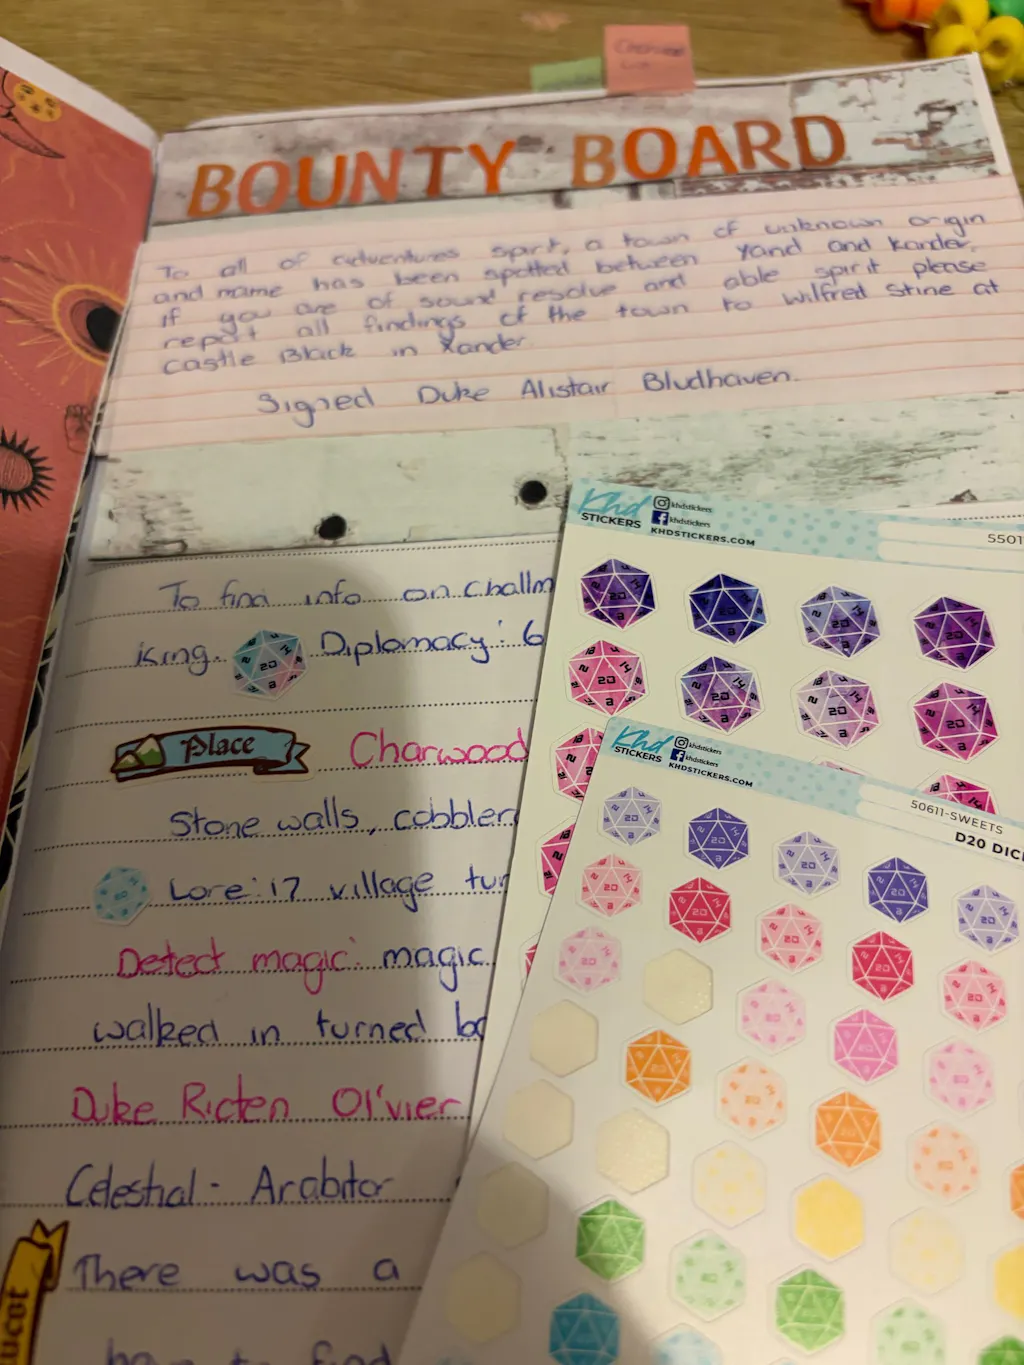 BOUNTY BOARD
To all of adventures spirit, a town of unknown origin
and name has been spotted between Yand and Kander.
If you are of sound resolve and able spirit please
report all findings of the town to Wilfred Stine at
castle Black in Xander
Signed Duke Alistair Bludhaven.
To find info on Challm
king. Diplomacy: 6
Place Charwood
Stone walls, cobbler
Lore: 17 village tur
Detect magic: magic
walked in turned bc
Duke Ricten Ol'vier
Celestial - Arabitor
There was a
have to find
Khd
STICKERS
khdstickers
khdstickers
KHDSTICKERS.COM
5501
Khd
STICKERS
khdstickers
khdstickers
KHDSTICKERS.COM
50611-SWEETS
D20 DIC